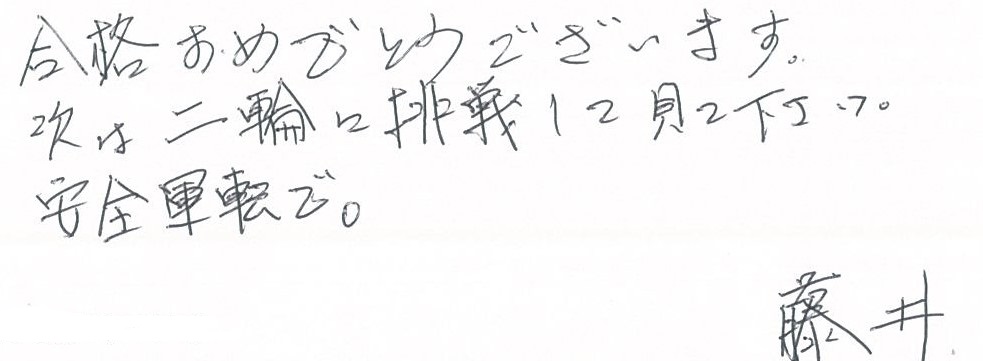 合格おめでとうございます。
次は二輪に挑戦して見て下さい。
安全運転で。
藤井